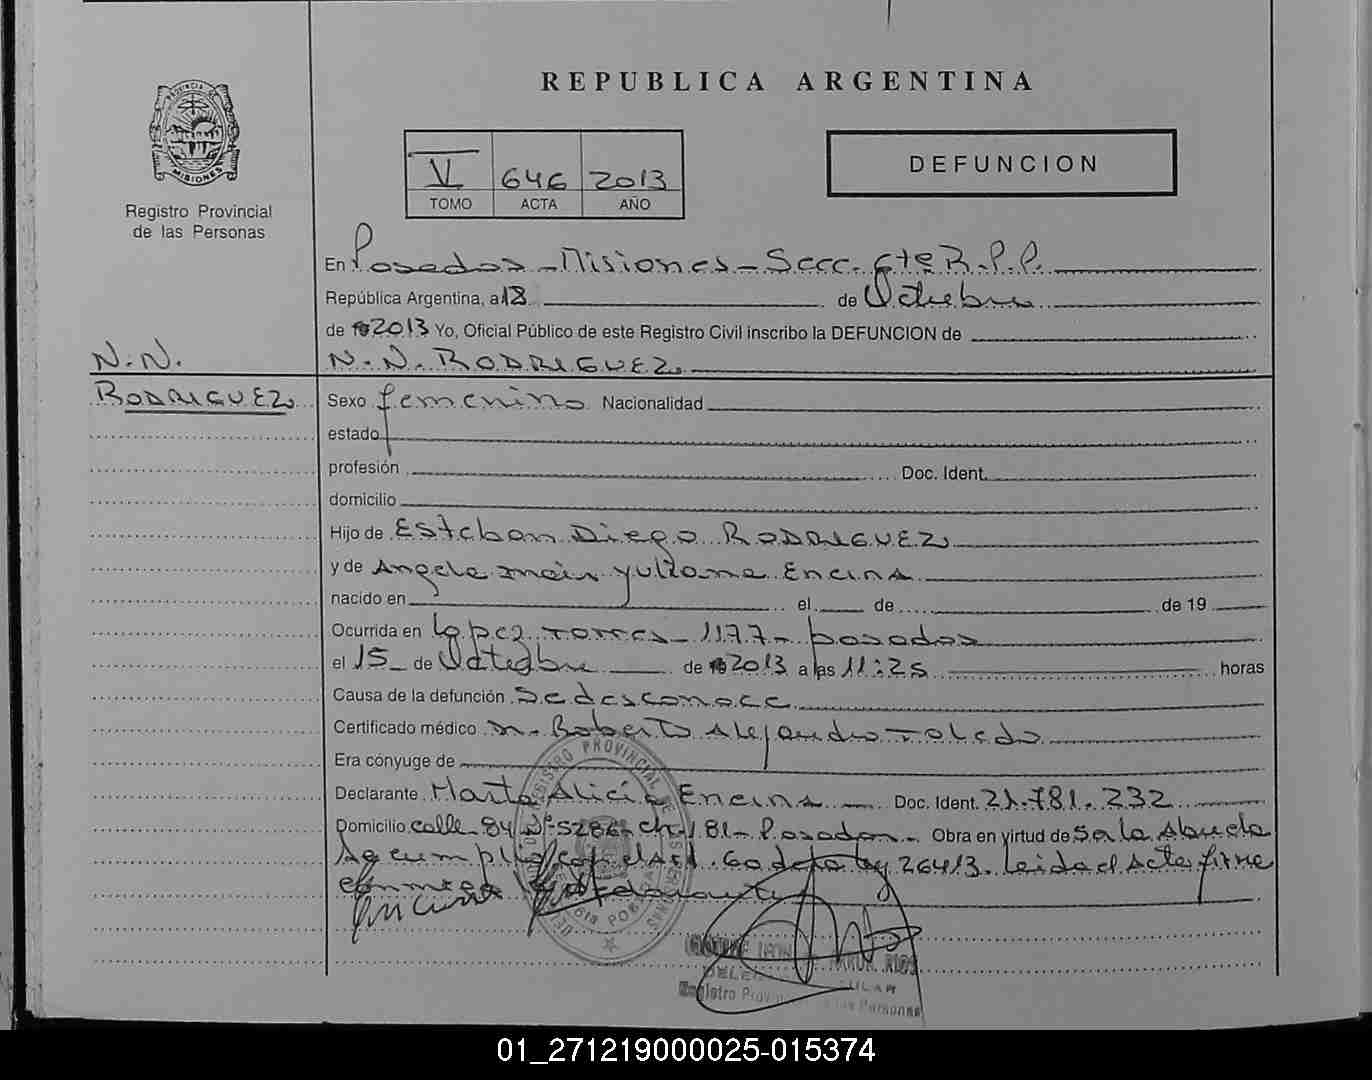 REPUBLICA ARGENTINA
DEFUNCION
V 646 2013
TOMO ACTA AÑO
PROVINCIA DE MISIONES
Registro Provincial
de las Personas
En Posadas - Misiones - Secc. 6ta R.P.P.
República Argentina, a 18 de Octubre
de 2013 Yo, Oficial Público de este Registro Civil inscribo la DEFUNCION de
N.N. RODRIGUEZ
N.N.
RODRIGUEZ
Sexo femenino Nacionalidad
estado
profesión Doc. Ident.
domicilio
Hijo de Esteban Diego RODRIGUEZ
y de Angela Yuliana Encina
nacido en el de de 19
Ocurrida en Lopez Torres - 1177 - Posadas
el 15 de Octubre de 2013 a las 11:25 horas
Causa de la defunción Se desconoce
Certificado médico Roberto Alejandro Toledo
Era cónyuge de
Declarante Marta Alicia Encina Doc. Ident. 21.781.232
Domicilio calle 84 Nº 5286 - Ch. 181 - Posadas - Obra en virtud de ser la Abuela
26413. Leida el Acta firma
conmigo
REGISTRO PROVINCIAL DE LAS PERSONAS
Registro Provincial de las Personas
01_271219000025-015374